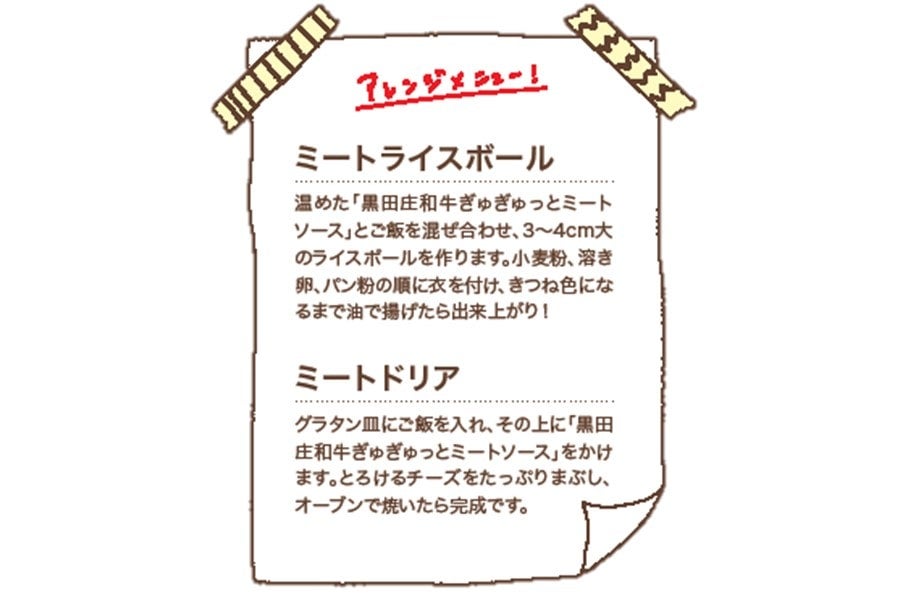 アレンジメニュー!
ミートライスボール
温めた「黒田庄和牛ぎゅぎゅっとミート
ソース」とご飯を混ぜ合わせ、3〜4cm大
のライスボールを作ります。小麦粉、溶き
卵、パン粉の順に衣を付け、きつね色にな
るまで油で揚げたら出来上がり!
ミートドリア
グラタン皿にご飯を入れ、その上に「黒田
庄和牛ぎゅぎゅっとミートソース」をかけ
ます。とろけるチーズをたっぷりまぶし、
オーブンで焼いたら完成です。